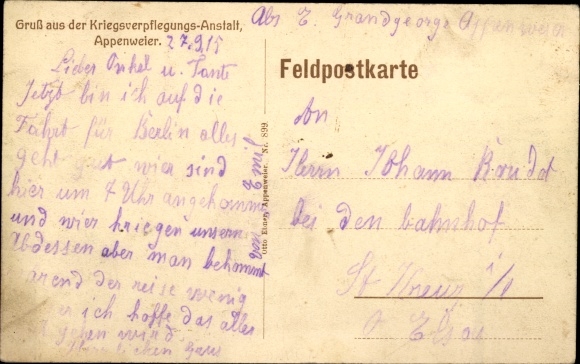 Gruß aus der Kriegsverpflegungs-Anstalt,
Appenweier. 27.9.15
Lieber Onkel u. Tante
Jetzt bin ich auf die
Fahrt für Berlin alles
geht gut wier sind
hier um 7 Uhr angekommen
und wier kriegen unsern
Abdessen aber man bekommt
der reise wenig
ich hoffe das alles
gehen wird
Otto Elmer, Appenweier. Nr. 899
Abs E. Grandgeorge
Feldpostkarte
An
Herrn Johann
bei den bahnhof
St Kreuz i/